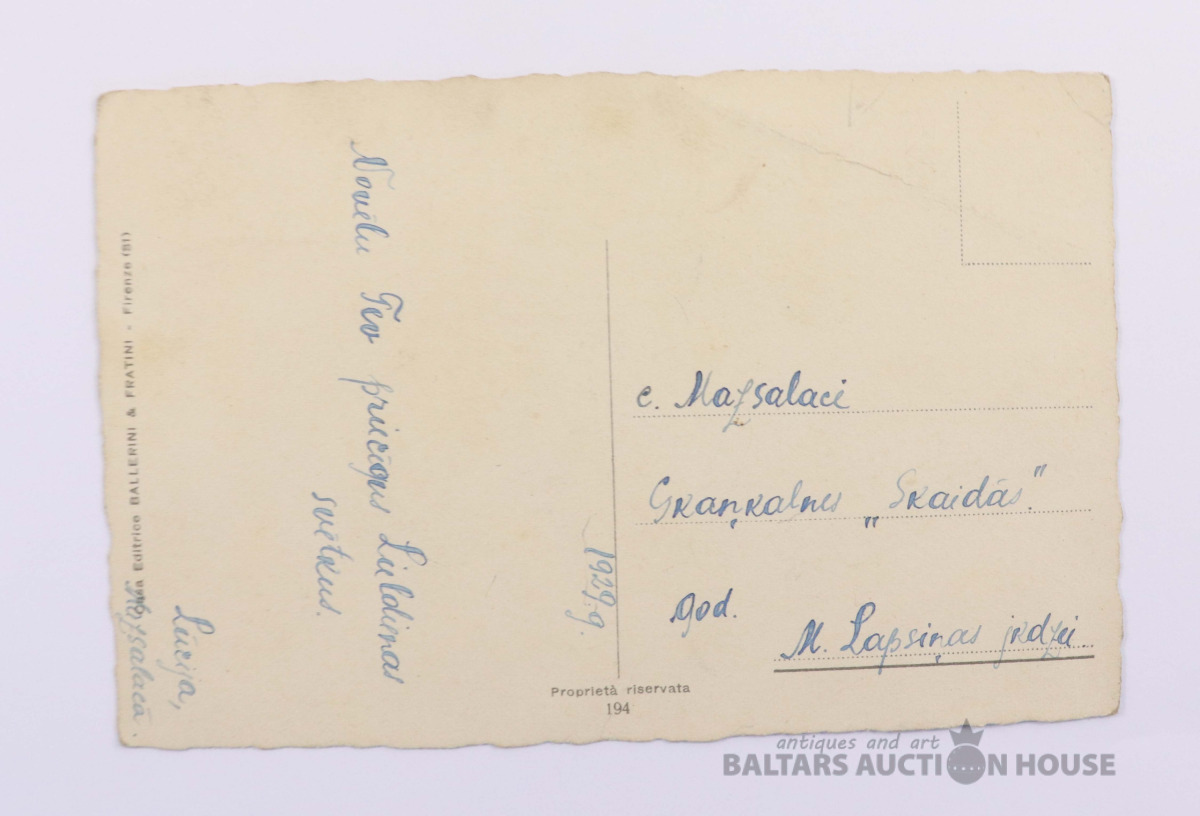 Novēlu Tev priecīgus Lieldienas
svētkus.
Lucija,
Mazsalacā.
1929.g.
Casa Editrice BALLERINI & FRATINI - Firenze (BI)
c. Mazsalaci
Skaņkalnes „Skaidās"
god.
M. Lapsiņas jkdzei
Proprietà riservata
194
antiques and art
BALTARS AUCTION HOUSE